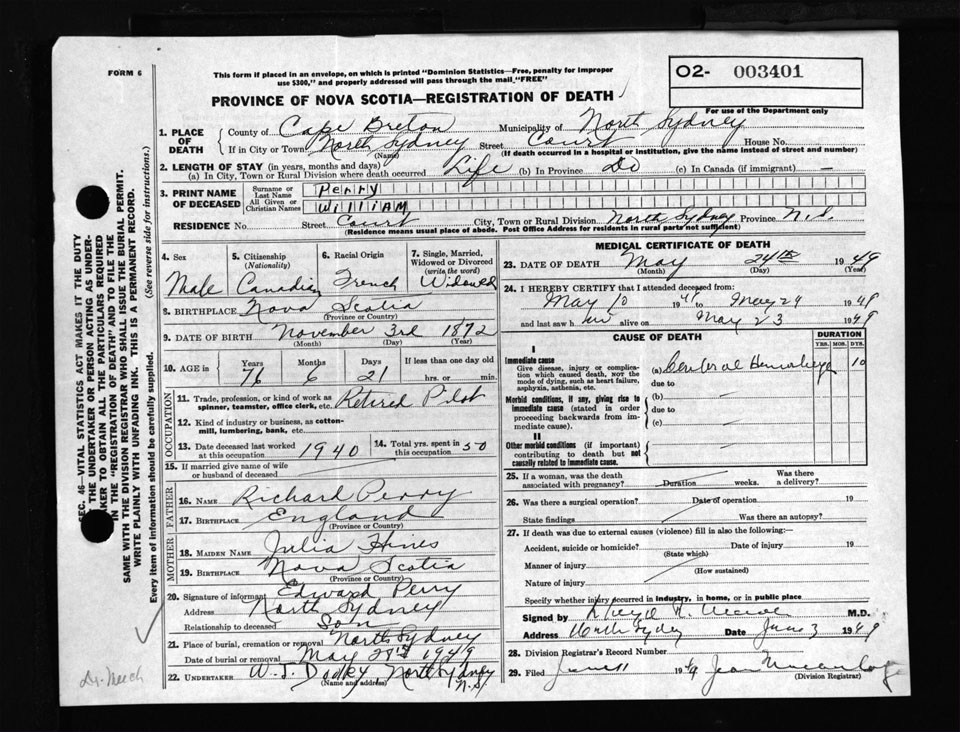 FORM 6
This form if placed in an envelope, on which is printed "Dominion Statistics—Free, penalty for improper
use $300," and properly addressed will pass through the mail "FREE"
O2- 003401
PROVINCE OF NOVA SCOTIA—REGISTRATION OF DEATH
For use of the Department only
1. PLACE OF DEATH { County of Cape Breton Municipality of North Sydney
If in City or Town North Sydney Street Court House No.
(Name) (If death occurred in a hospital or institution, give the name instead of street and number)
2. LENGTH OF STAY (in years, months and days)
(a) In City, Town or Rural Division where death occurred Life (b) In Province Do (c) In Canada (if immigrant) —
3. PRINT NAME OF DECEASED { Surname or Last Name Perry
All Given or Christian Names WilliAM
RESIDENCE No. Street Court City, Town or Rural Division North Sydney Province N.S.
(Residence means usual place of abode. Post Office Address for residents in rural parts not sufficient)
4. Sex Male
5. Citizenship (Nationality) Canadian
6. Racial Origin French
7. Single, Married, Widowed or Divorced (write the word) Widowed
8. BIRTHPLACE Nova Scotia
(Province or Country)
9. DATE OF BIRTH November 3rd 1872
(Month) (Day) (Year)
10. AGE in { Years 76 Months 6 Days 21 If less than one day old
hrs. or min.
OCCUPATION
11. Trade, profession, or kind of work as Retired Pilot
spinner, teamster, office clerk, etc.
12. Kind of industry or business, as cotton-
mill, lumbering, bank, etc.
13. Date deceased last worked at this occupation 1940
14. Total yrs. spent in this occupation 50
15. If married give name of wife
or husband of deceased
FATHER
16. NAME Richard Perry
17. BIRTHPLACE England
(Province or Country)
MOTHER
18. MAIDEN NAME Julia Hines
19. BIRTHPLACE Nova Scotia
(Province or Country)
20. Signature of informant Edward Perry
Address North Sydney
Relationship to deceased Son
21. Place of burial, cremation or removal North Sydney
Date of burial or removal May 28th 1949
22. UNDERTAKER W. J. Dooley North Sydney N.S.
(Name and address)
MEDICAL CERTIFICATE OF DEATH
23. DATE OF DEATH May 24th 1949
(Month) (Day) (Year)
24. I HEREBY CERTIFY that I attended deceased from:
May 10 19 to May 24 1949
and last saw h im alive on May 23 1949
CAUSE OF DEATH
DURATION
YRS. MOS. DYS.
I
Immediate cause
Give disease, injury or complica-
tion which caused death, NOT the
mode of dying, such as heart failure,
asphyxia, asthenia, etc.
(a) Cerebral Hemorrhage 10
due to
Morbid conditions, if any, giving rise to
immediate cause (stated in order
proceeding backwards from im-
mediate cause).
(b) —
due to
(c) —
II
Other morbid conditions (if important)
contributing to death but not
causally related to immediate cause.
25. If a woman, was the death
associated with pregnancy? Duration weeks. Was there
a delivery?
26. Was there a surgical operation? Date of operation 19
State findings Was there an autopsy?
27. If death was due to external causes (violence) fill in also the following:—
Accident, suicide or homicide? Date of injury 19
(State which)
Manner of injury
(How sustained)
Nature of injury
Specify whether injury occurred in industry, in home, or in public place
Signed by M.D.
Address North Sydney Date June 3 1949
28. Division Registrar's Record Number
29. Filed June 11 1949 Jean
(Division Registrar)
SEC. 46—VITAL STATISTICS ACT MAKES IT THE DUTY
OF THE UNDERTAKER OR PERSON ACTING AS UNDER-
TAKER TO OBTAIN ALL THE PARTICULARS REQUIRED
IN THE "REGISTRATION OF DEATH" AND TO FILE THE
SAME WITH THE DIVISION REGISTRAR WHO SHALL ISSUE THE BURIAL PERMIT.
WRITE PLAINLY WITH UNFADING INK. THIS IS A PERMANENT RECORD.
Every item of information should be carefully supplied. (See reverse side for instructions.)